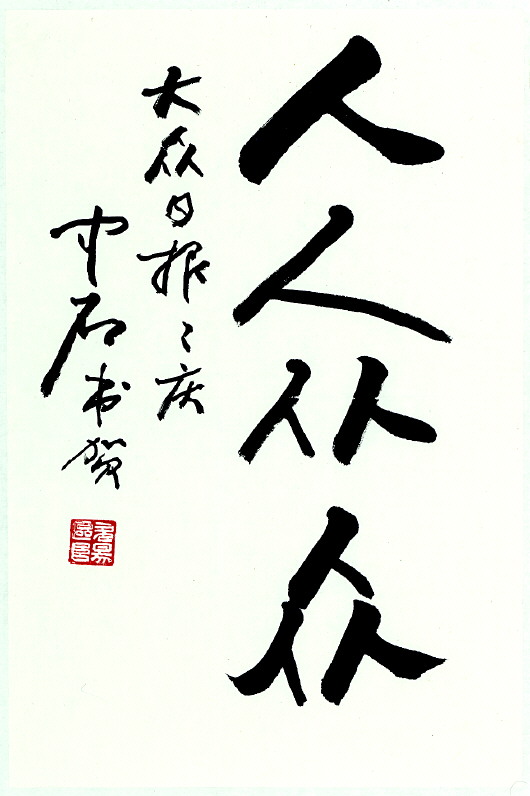 人人从众
大众日报〻庆
中石书贺